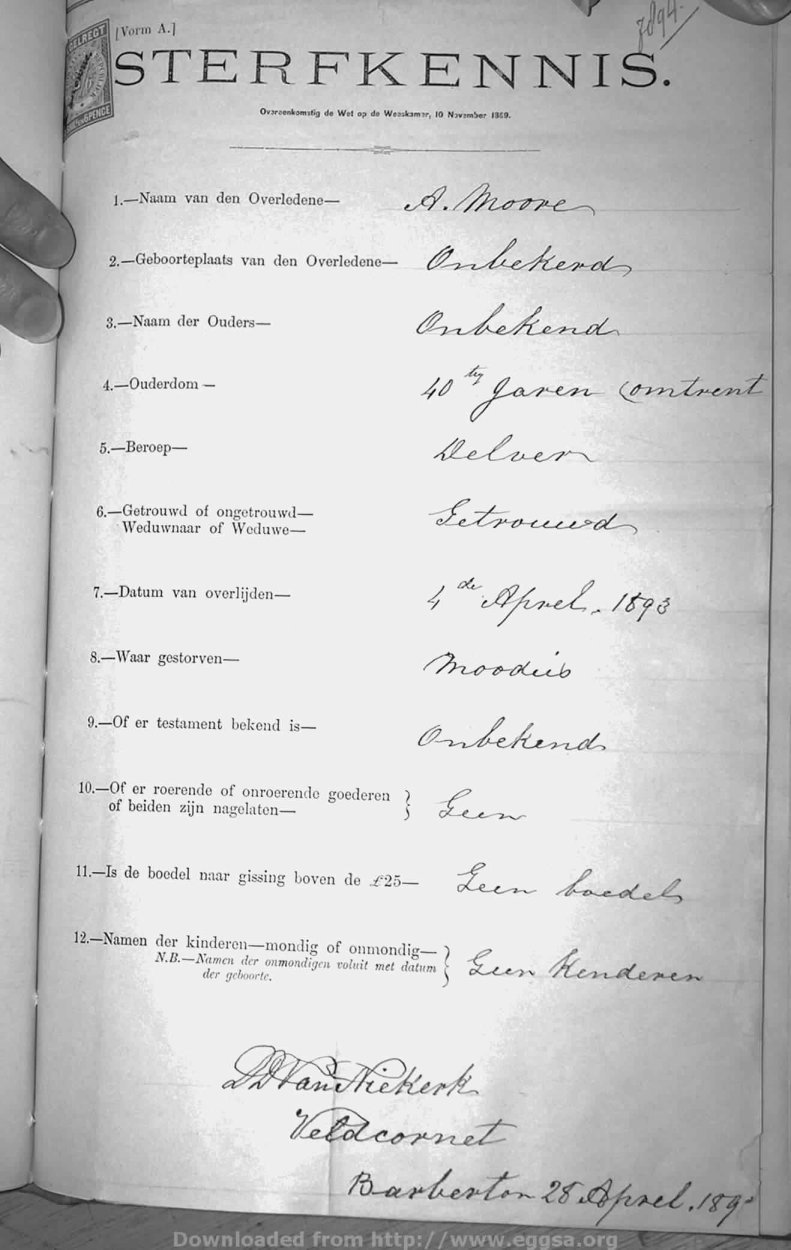 [Vorm A.]
7894.
ZELREGT
6PENCE
STERFKENNIS.
Overeenkomstig de Wet op de Weeskamer, 10 November 1869.
1.—Naam van den Overledene— A. Moore
2.—Geboorteplaats van den Overledene— Onbekend
3.—Naam der Ouders— Onbekend
4.—Ouderdom— 40tig Jaren (omtrent
5.—Beroep— Delver
6.—Getrouwd of ongetrouwd— Getrouwd
Weduwnaar of Weduwe—
7.—Datum van overlijden— 4de Aprel. 1893
8.—Waar gestorven— Moodies
9.—Of er testament bekend is— Onbekend
10.—Of er roerende of onroerende goederen
of beiden zijn nagelaten— } Geen
11.—Is de boedel naar gissing boven de £25— Geen boedel
12.—Namen der kinderen—mondig of onmondig—
N.B.—Namen der onmondigen voluit met datum
der geboorte. } Geen Kenderen
DD Van Niekerk
Veldcornet
Barberton 28 Aprel. 189
Downloaded from http://www.eggsa.org